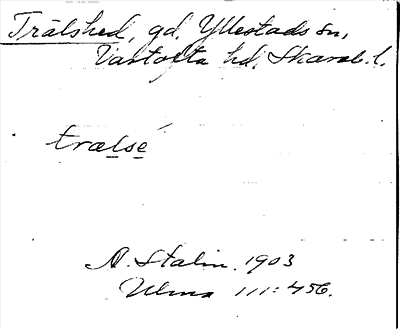 Trälshed, gd, Yllestads sn,
Vartofta hd, Skarab. l.
trælsé
A. Stalin. 1903
Ulma 111:456.